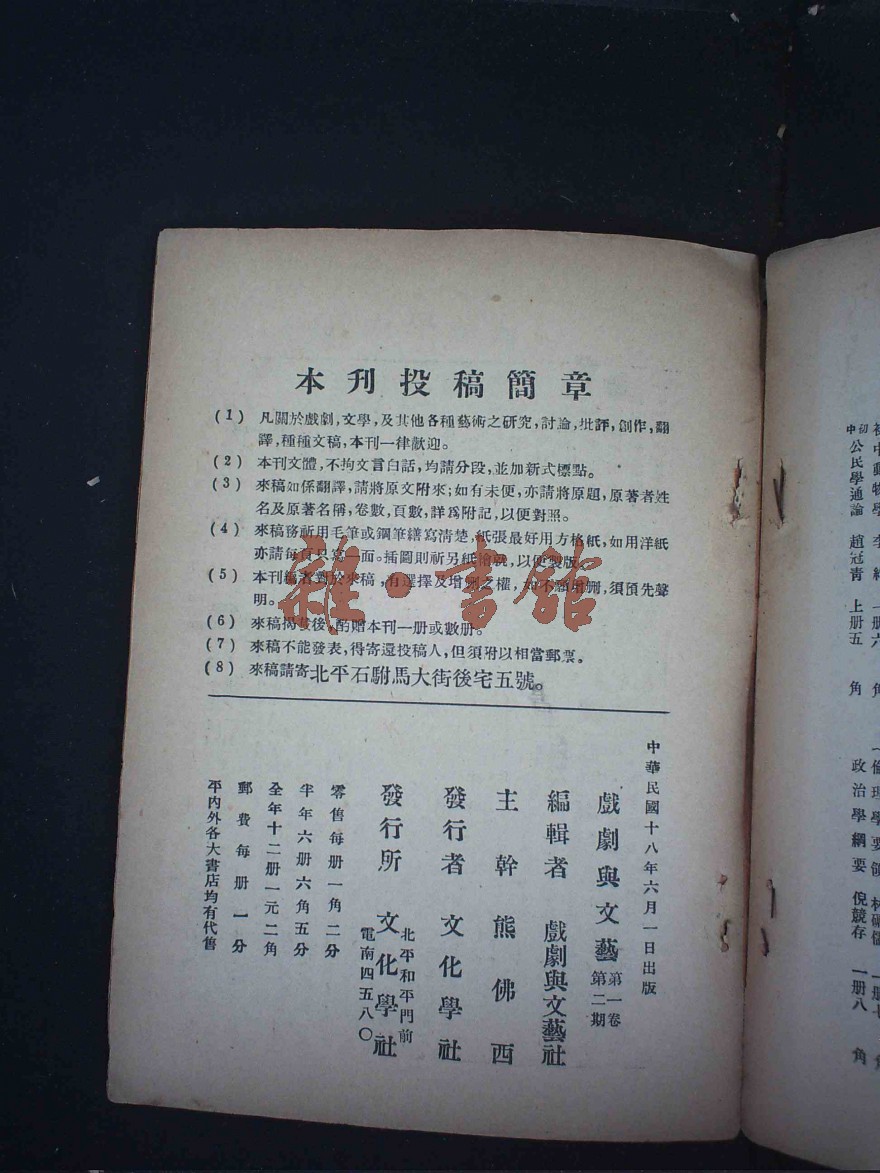 本刊投稿簡章
(1) 凡關於戲劇,文學,及其他各種藝術之研究,討論,批評,創作,翻
譯,種種文稿,本刊一律歡迎。
(2) 本刊文體,不拘文言白話,均請分段,並加新式標點。
(3) 來稿如係翻譯,請將原文附來;如有未便,亦請將原題,原著者姓
名及原著名稱,卷數,頁數,詳爲附記,以便對照。
(4) 來稿務祈用毛筆或鋼筆繕寫清楚,紙張最好用方格紙,如用洋紙
亦請每頁只寫一面。插圖則祈另紙繪就,以便製版。
(5) 本刊編者對於來稿,有選擇及增刪之權,如不願增刪,須預先聲
明。
(6) 來稿揭登後,酌贈本刊一册或數册。
(7) 來稿不能發表,得寄還投稿人,但須附以相當郵票。
(8) 來稿請寄北平石駙馬大街後宅五號。
雜·書舘
中華民國十八年六月一日出版
戲劇與文藝 第一卷
第二期
編輯者 戲劇與文藝社
主幹 熊佛西
發行者 文化學社
發行所 文化學社
北平和平門前
電南四五八〇
零售每册一角二分
半年六册六角五分
全年十二册一元二角
郵費每册一分
平內外各大書店均有代售
初中公民學通論 趙冠青 上册五角
政治學綱要 倪競存 一册八角